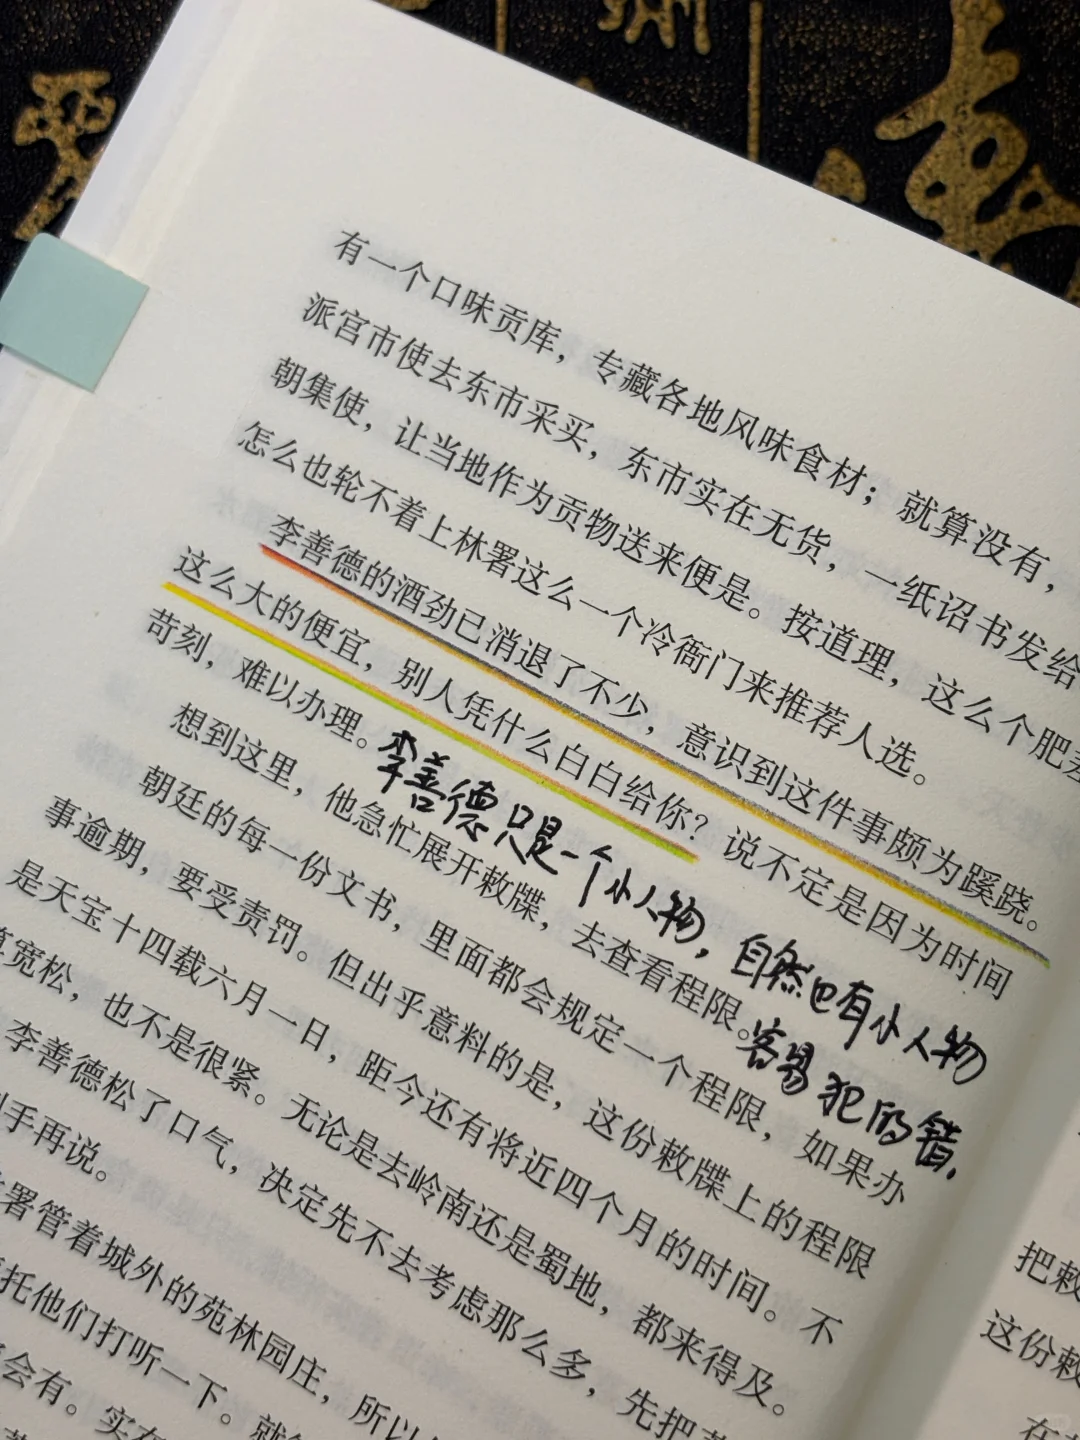 有一个口味贡库，专藏各地风味食材；就算没有，
派宫市使去东市采买，东市实在无货，一纸诏书发给
朝集使，让当地作为贡物送来便是。按道理，这么个肥差
怎么也轮不着上林署这么一个冷衙门来推荐人选。
李善德的酒劲已消退了不少，意识到这件事颇为蹊跷。
这么大的便宜，别人凭什么白白给你？说不定是因为时间
苛刻，难以办理。
李善德只是一个小人物，自然也有小人物
容易犯的错，
想到这里，他急忙展开敕牒，去查看程限。
朝廷的每一份文书，里面都会规定一个程限，如果办
事逾期，要受责罚。但出乎意料的是，这份敕牒上的程限
是天宝十四载六月一日，距今还有将近四个月的时间。不
算宽松，也不是很紧。无论是去岭南还是蜀地，都来得及。
李善德松了口气，决定先不去考虑那么多，先把
到手再说。
署管着城外的苑林园庄，所以
托他们打听一下。就
会有。实在
把敕
这份敕
在